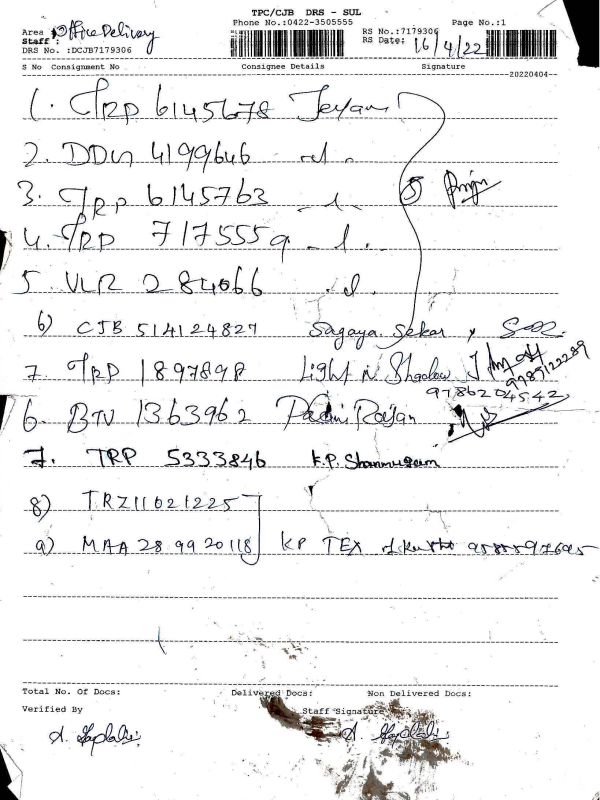 TPC/CJB DRS - SUL
Phone No.:0422-3505555 Page No.:1
Area : Office Delivery
Staff :
DRS No. :DCJB7179306
RS No.:7179306
RS Date: 16/4/22
S No Consignment No Consignee Details Signature
20220404
1. TRP 6145678 Jeyam
2. DDN 4199646
3. TRP 6145763 5
4. TRP 7175559
5. VLR 284066
6) CJB 514124827 Sagaya Sekar
7. TRP 1897898 Light N Shadow
9785122289
9786204542
6. BTN 1363962 Palani Rajan
7. TRP 5333846 K.P. Shanmugam
8) TRZ11021225
9) MAA 28 9920118 KP TEX
Total No. Of Docs: Delivered Docs: Non Delivered Docs:
Verified By Staff Signature